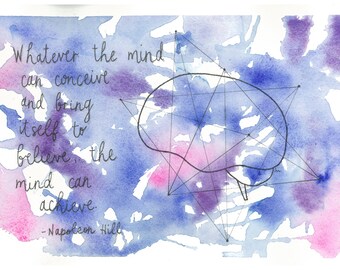 Whatever the mind
can conceive
and bring
itself to
believe.. the
mind can
achieve
-Napoleon Hill